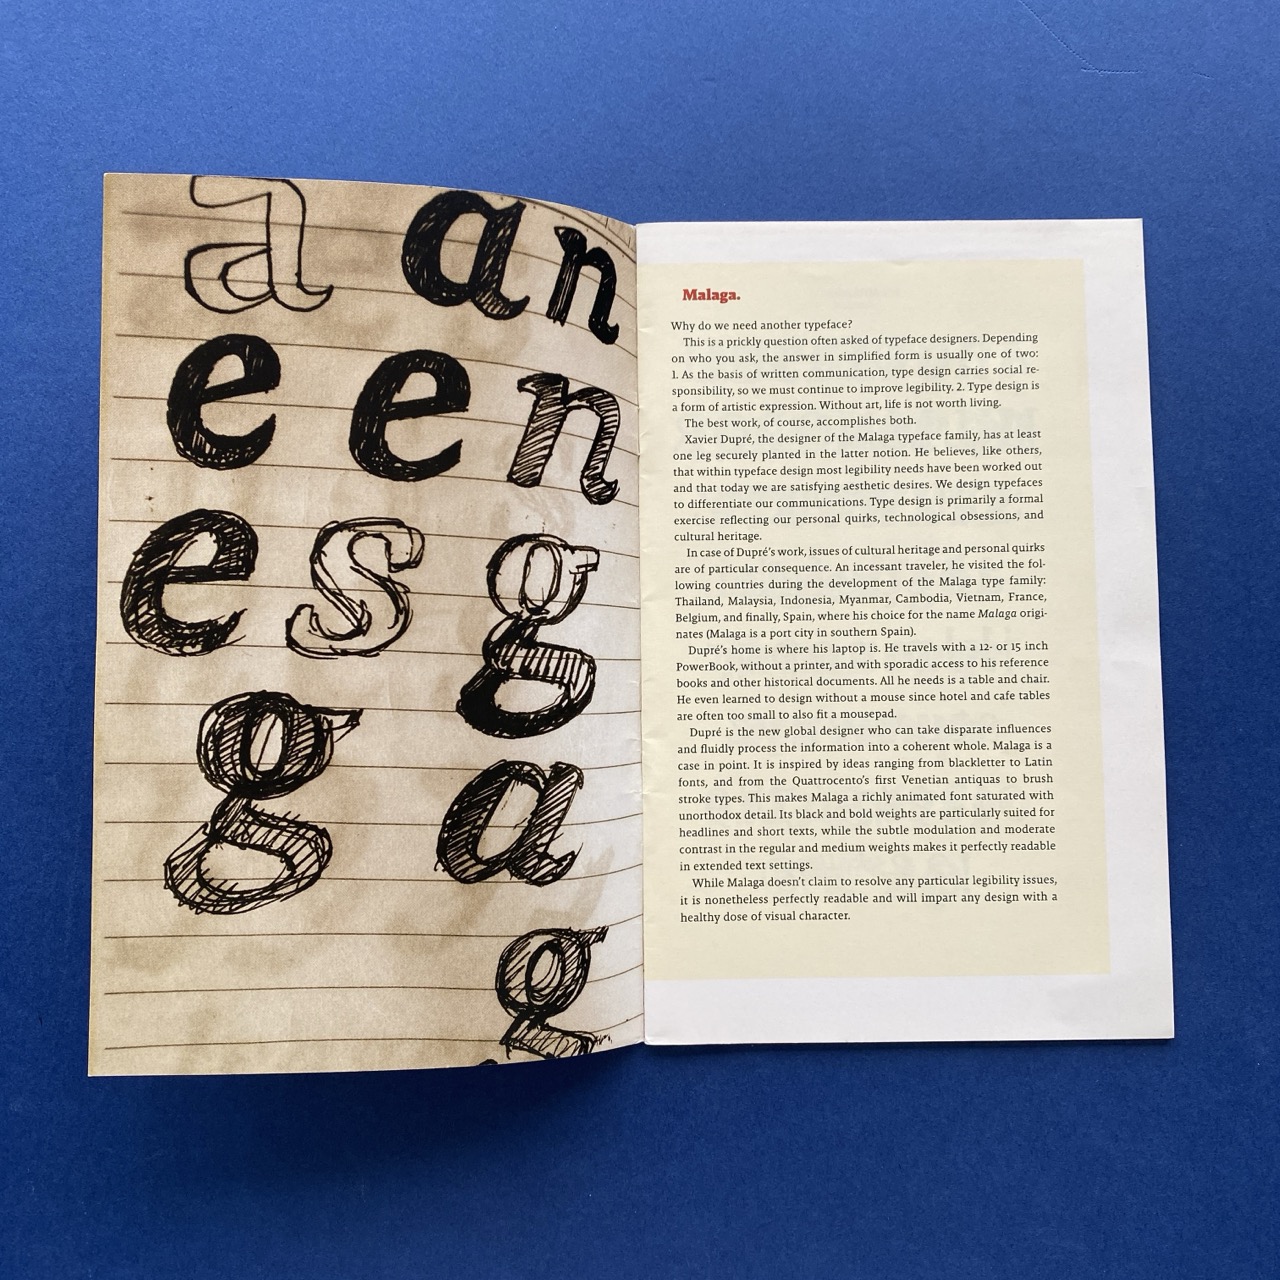 a a n
e e n
e s g
g a
g
Malaga.
Why do we need another typeface?
This is a prickly question often asked of typeface designers. Depending
on who you ask, the answer in simplified form is usually one of two:
1. As the basis of written communication, type design carries social re-
sponsibility, so we must continue to improve legibility. 2. Type design is
a form of artistic expression. Without art, life is not worth living.
The best work, of course, accomplishes both.
Xavier Dupré, the designer of the Malaga typeface family, has at least
one leg securely planted in the latter notion. He believes, like others,
that within typeface design most legibility needs have been worked out
and that today we are satisfying aesthetic desires. We design typefaces
to differentiate our communications. Type design is primarily a formal
exercise reflecting our personal quirks, technological obsessions, and
cultural heritage.
In case of Dupré's work, issues of cultural heritage and personal quirks
are of particular consequence. An incessant traveler, he visited the fol-
lowing countries during the development of the Malaga type family:
Thailand, Malaysia, Indonesia, Myanmar, Cambodia, Vietnam, France,
Belgium, and finally, Spain, where his choice for the name Malaga origi-
nates (Malaga is a port city in southern Spain).
Dupré's home is where his laptop is. He travels with a 12- or 15 inch
PowerBook, without a printer, and with sporadic access to his reference
books and other historical documents. All he needs is a table and chair.
He even learned to design without a mouse since hotel and cafe tables
are often too small to also fit a mousepad.
Dupré is the new global designer who can take disparate influences
and fluidly process the information into a coherent whole. Malaga is a
case in point. It is inspired by ideas ranging from blackletter to Latin
fonts, and from the Quattrocento's first Venetian antiquas to brush
stroke types. This makes Malaga a richly animated font saturated with
unorthodox detail. Its black and bold weights are particularly suited for
headlines and short texts, while the subtle modulation and moderate
contrast in the regular and medium weights makes it perfectly readable
in extended text settings.
While Malaga doesn't claim to resolve any particular legibility issues,
it is nonetheless perfectly readable and will impart any design with a
healthy dose of visual character.